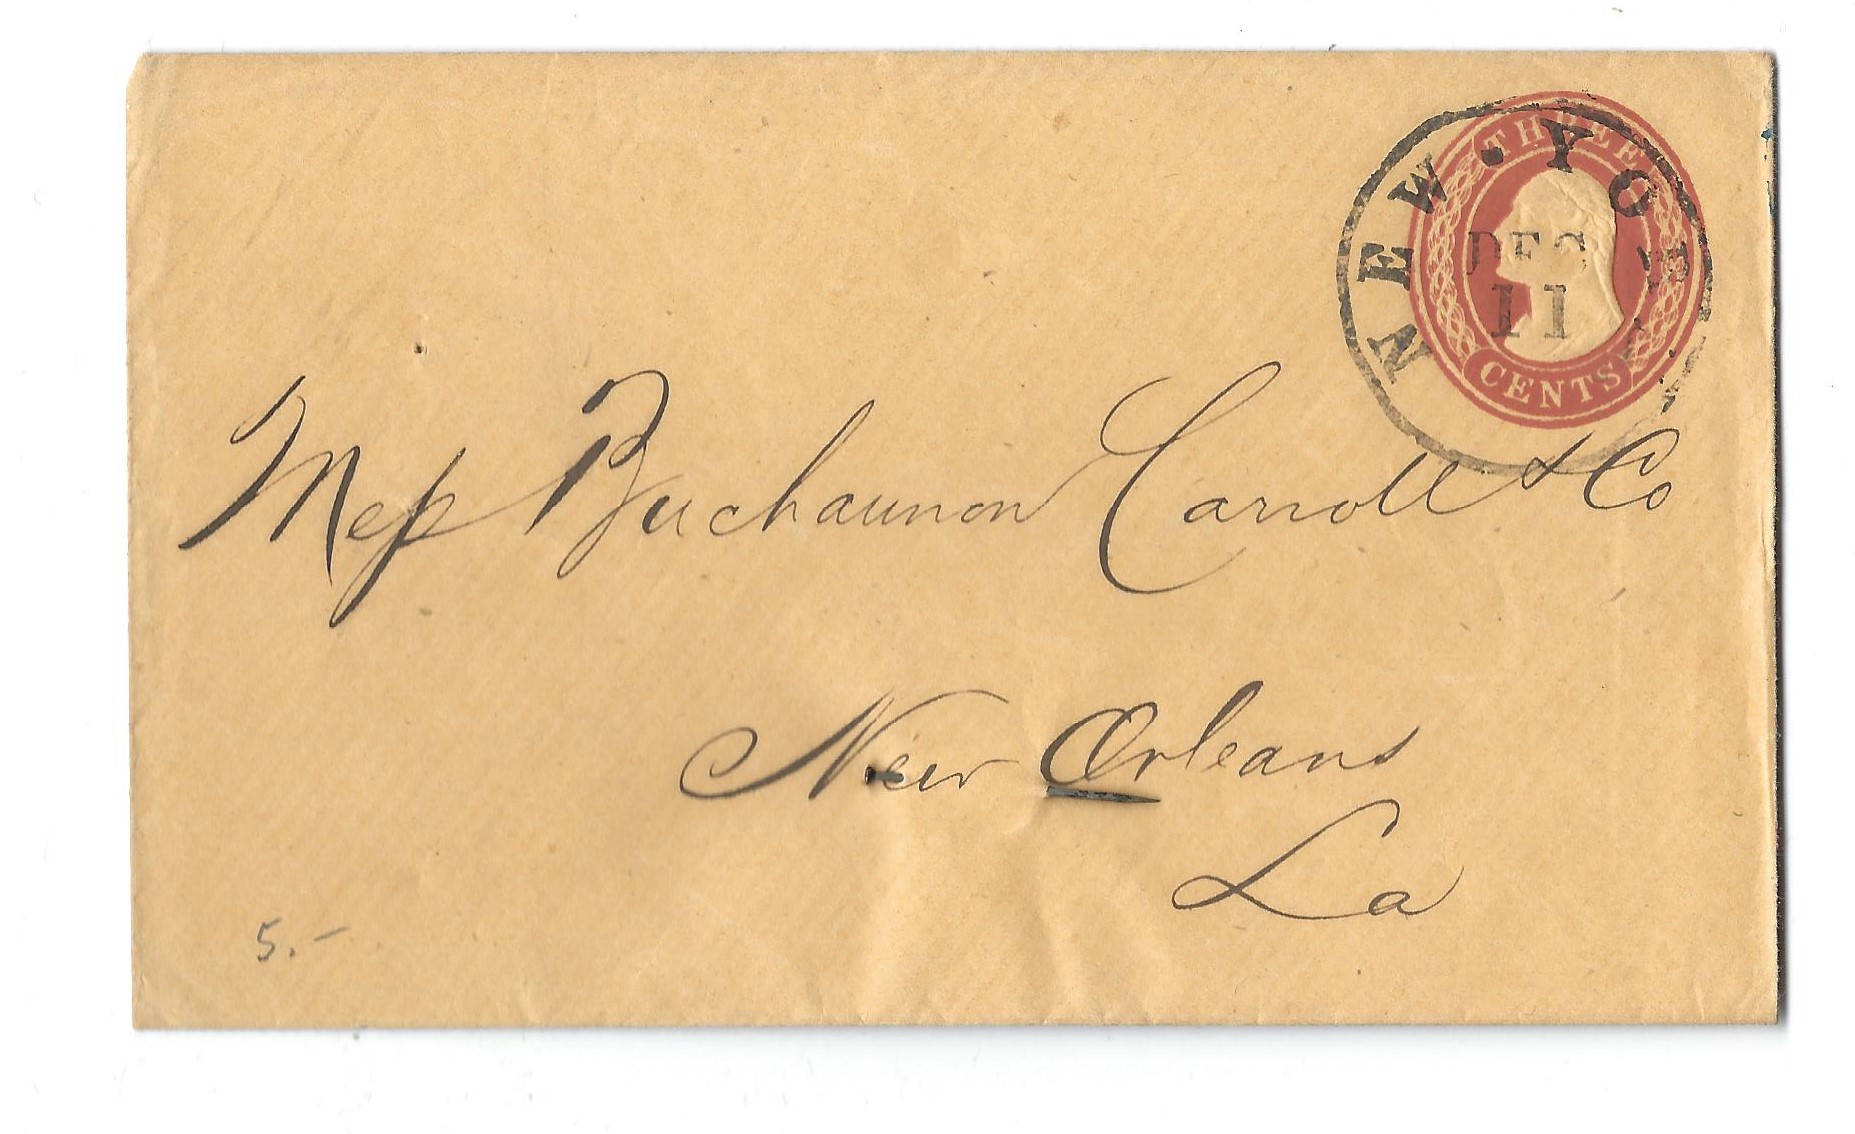 THREE
CENTS
NEW · YORK
DEC
11
Mess Buchaunon Carroll & Co
New Orleans
La
5.-